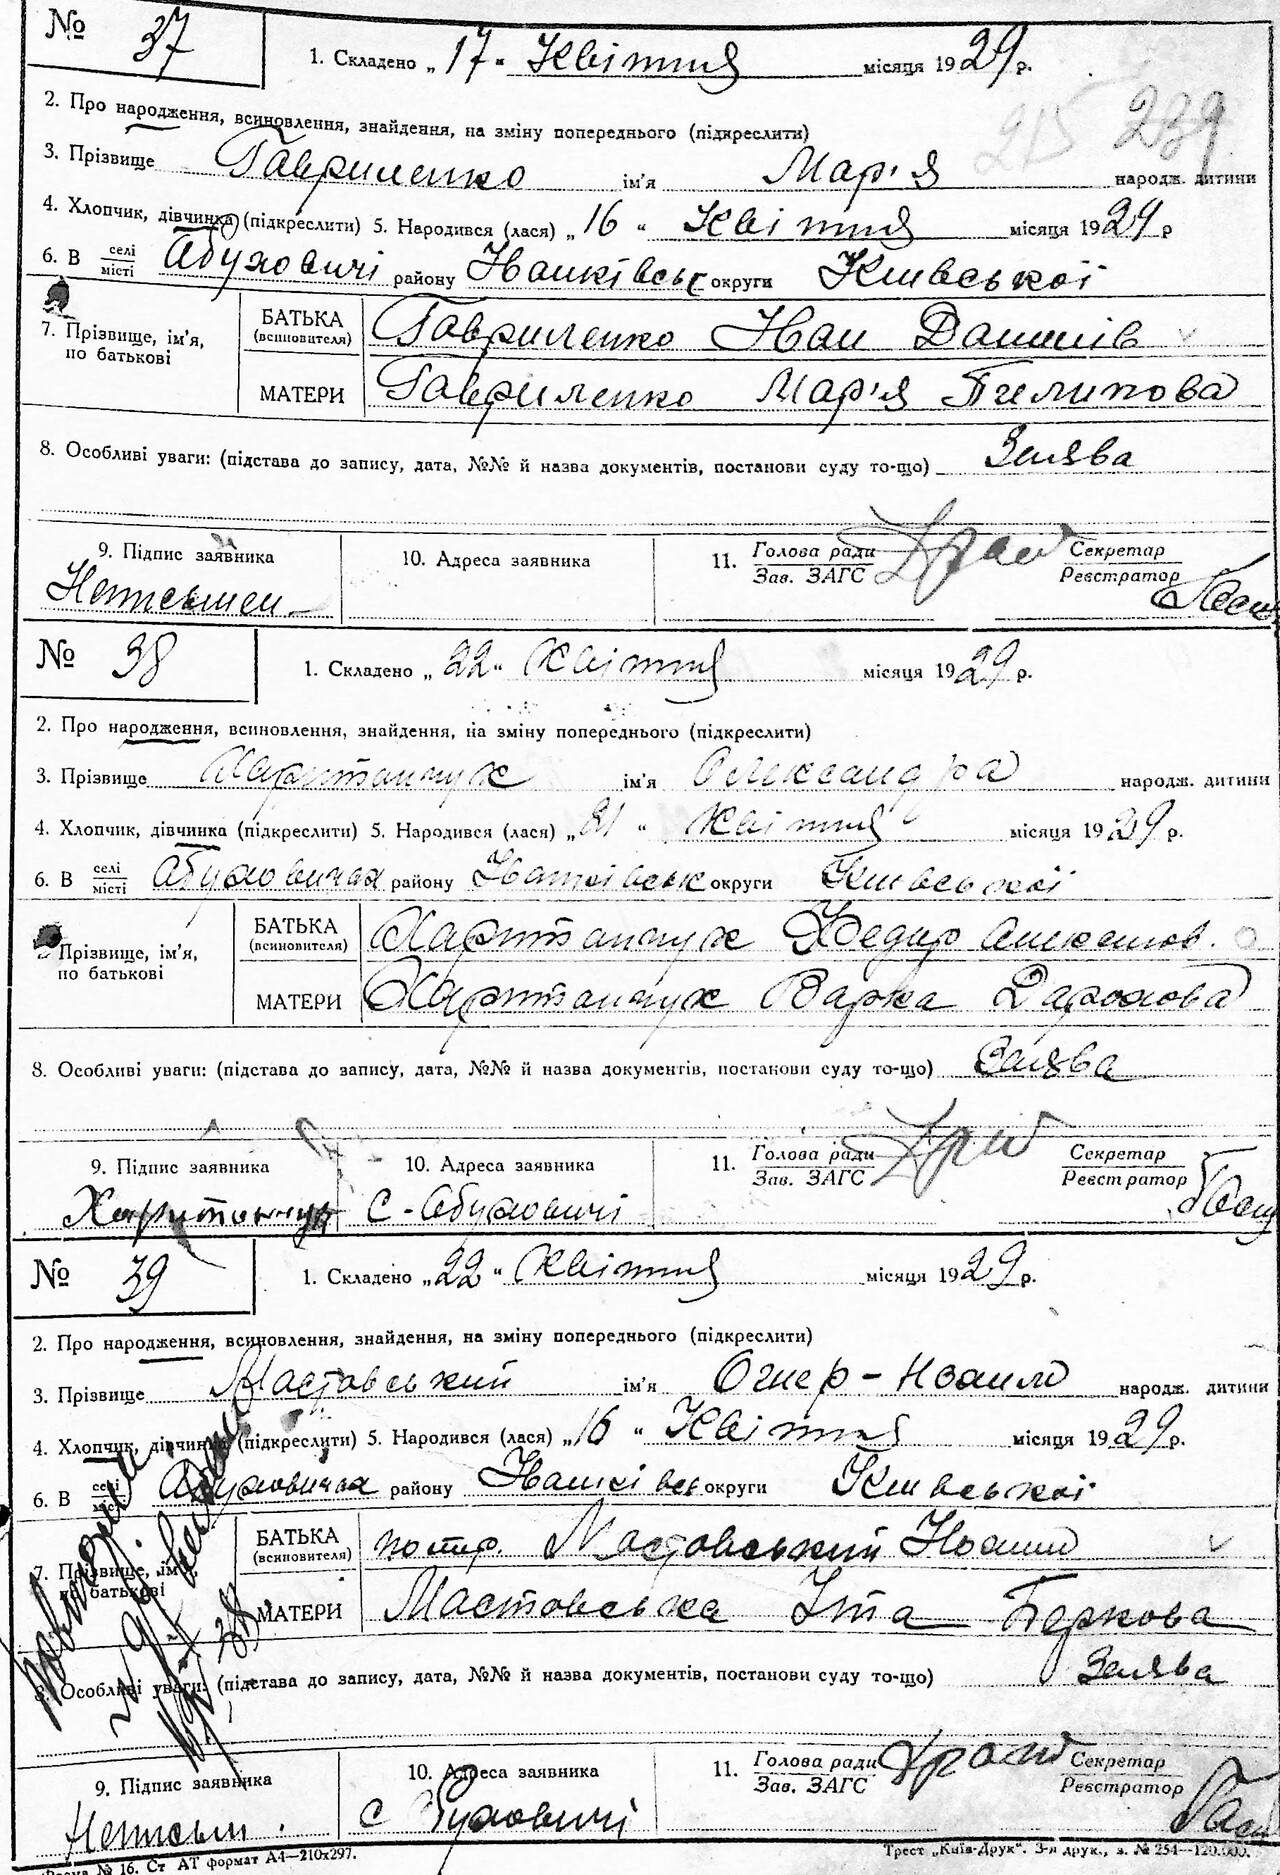 № 37
1. Складено „17" Квітня місяця 1929 р.
215 239
2. Про народження, всиновлення, знайдення, на зміну попереднього (підкреслити)
3. Прізвище Гавриленко ім'я Мар'я народж. дитини
4. Хлопчик, дівчинка (підкреслити) 5. Народився (лася) „16" Квітня місяця 1929 р
6. В селі місті Абуховичі району Іванківськ округи Київської
7. Прізвище, ім'я, по батькові
БАТЬКА (всиновителя) Гавриленко Іван Данилів
МАТЕРИ Гавриленко Мар'я Пилипова
8. Особливі уваги: (підстава до запису, дата, №№ й назва документів, постанови суду то-що) Заява
9. Підпис заявника 10. Адреса заявника 11. Голова ради Зав. ЗАГС Секретар Реєстратор
Неписьмен
№ 38
1. Складено „22" Квітня місяця 1929 р.
2. Про народження, всиновлення, знайдення, на зміну попереднього (підкреслити)
3. Прізвище Харитончук ім'я Олександра народж. дитини
4. Хлопчик, дівчинка (підкреслити) 5. Народився (лася) „21" Квітня місяця 1929 р.
6. В селі місті Абуховичах району Іванківськ округи Київської
Прізвище, ім'я, по батькові
БАТЬКА (всиновителя) Харитончук Федир
МАТЕРИ Харитончук Варка
8. Особливі уваги: (підстава до запису, дата, №№ й назва документів, постанови суду то-що) Заява
9. Підпис заявника 10. Адреса заявника 11. Голова ради Зав. ЗАГС Секретар Реєстратор
Харитончук С-Абуховичі
№ 39
1. Складено „22" Квітня місяця 1929 р.
2. Про народження, всиновлення, знайдення, на зміну попереднього (підкреслити)
3. Прізвище Мастовський ім'я народж. дитини
4. Хлопчик, дівчинка (підкреслити) 5. Народився (лася) „16" Квітня місяця 1929 р.
6. В селі місті Абуховичах району Іванківськ округи Київської
7. Прізвище, ім'я, по батькові
БАТЬКА (всиновителя) Мастовський
МАТЕРИ Мастовська Ита Беркова
8. Особливі уваги: (підстава до запису, дата, №№ й назва документів, постанови суду то-що) Заява
9. Підпис заявника 10. Адреса заявника 11. Голова ради Зав. ЗАГС Секретар Реєстратор
Неписьм. с
№ 16. Ст АТ формат А4—210х297.
Трест „Київ-Друк". 3-я друк., з. № 254—120.000.